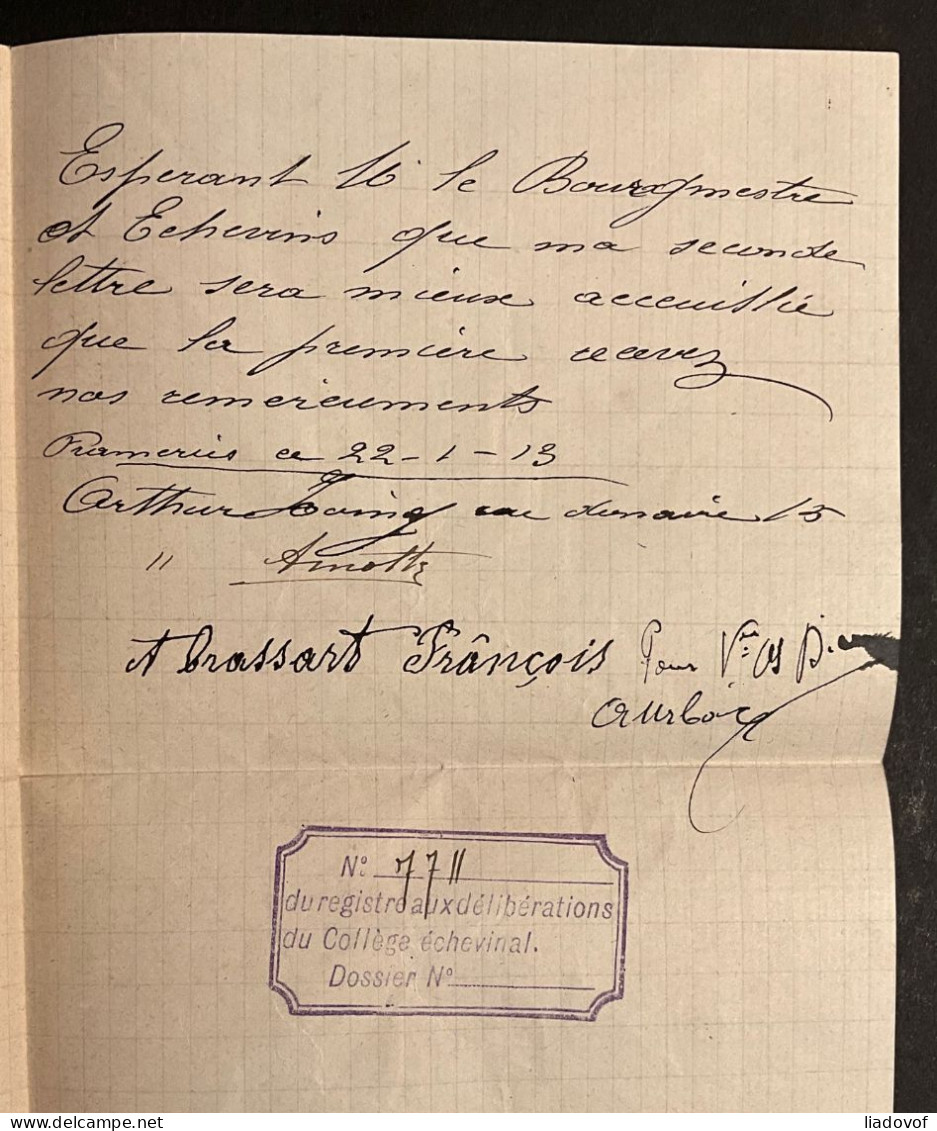 Esperant M le Bourgmestre
et Echevins que ma seconde
lettre sera mieux acceuillie
que la première recevez
nos remerciements
Frameries ce 22-1-13
Arthur rue 15
"
A Brassart Frânçois Pour Vve
N° 7711
du registre aux délibérations
du Collège échevinal.
Dossier N°
liadovof